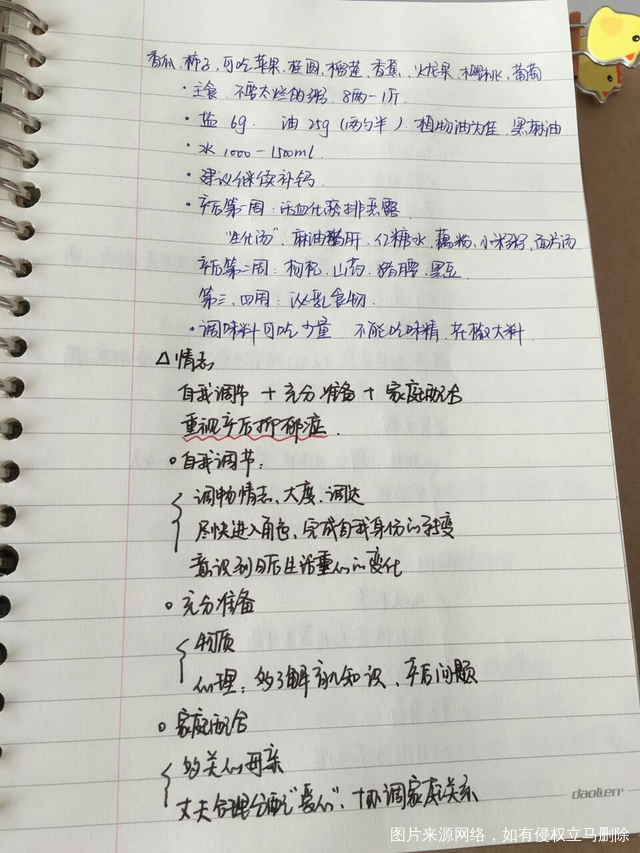 香瓜、柿子、可吃苹果、桂圆、榴莲、香蕉、火龙果、樱桃、葡萄
· 主食 不要太烂的粥. 8两一1斤
· 盐 6g. 油 25g (两勺半). 植物油为佳. 黑麻油
· 水 1000 - 1500ml.
· 建议继续补钙
· 产后第一周:活血化瘀排恶露
"生化汤"、麻油猪肝、红糖水、藕粉、小米粥、面片汤
产后第二周:枸杞、山药、猪腰、黑豆.
第三、四周:泌乳食物.
· 调味料可吃少量 不能吃味精、花椒大料.
△情志
自我调节 + 充分准备 + 家庭配合
重视产后抑郁症.
· 自我调节:
调畅情志、大度、调达
尽快进入角色、完成自我身份的转变
意识到日后生活重心的变化
· 充分准备
物质
心理:多了解育儿知识、产后问题
· 家庭配合
多关心母亲
丈夫合理分配"爱心"、协调家庭关系
daolien
图片来源网络,如有侵权立马删除